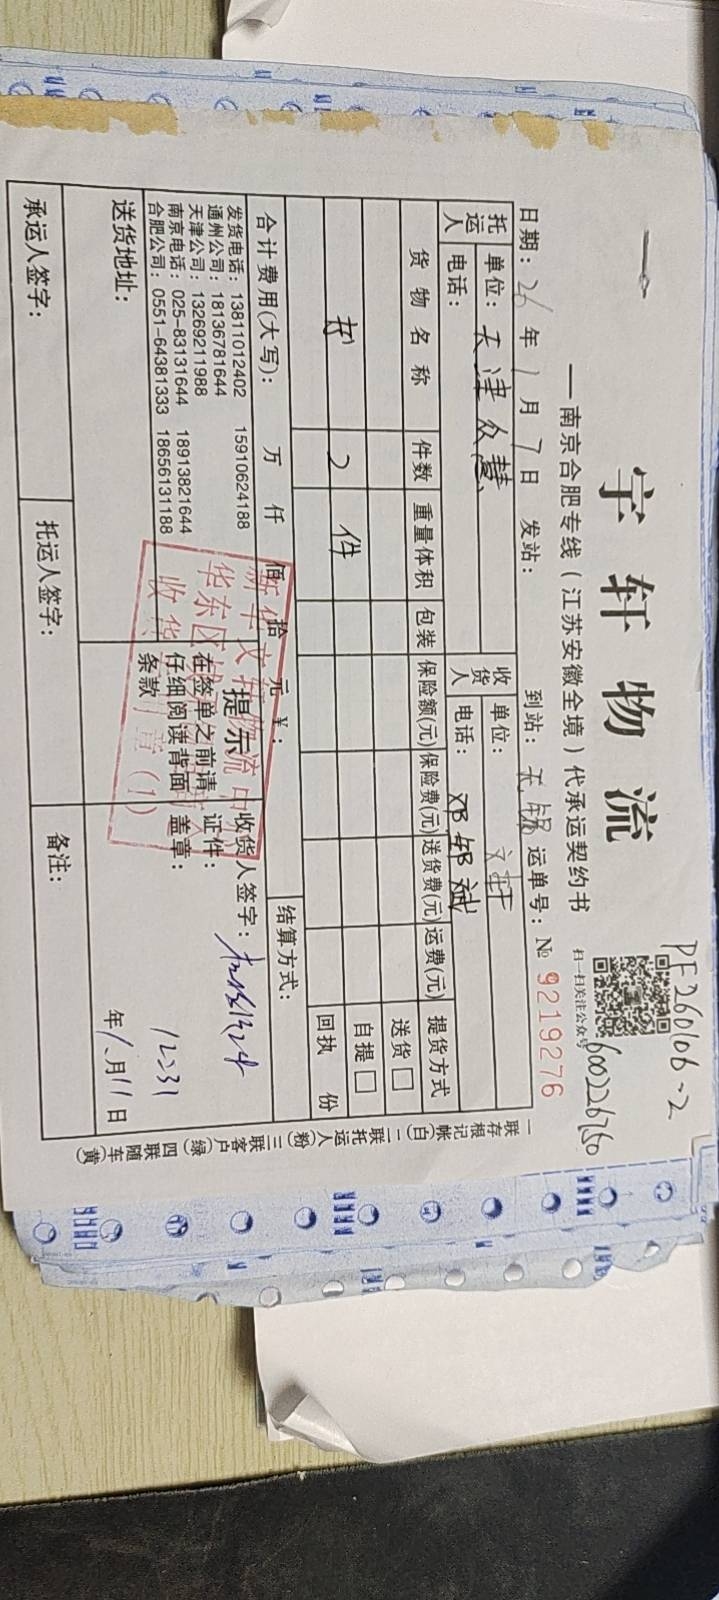 PF260106-2
600226760
宇轩物流
扫一扫关注公众号
—南京合肥专线(江苏安徽全境)代承运契约书
日期：26年1月7日 发站： 到站：无锡 运单号：№ 9219276
托运人 单位：天津众慧 收货人 单位：文轩
电话： 电话：邓邹斌
货物名称 件数 重量体积 包装 保险额(元) 保险费(元) 送货费(元) 运费(元) 提货方式
送货□
自提□
书 2 件
回执 份
合计费用(大写)： 万 仟 佰 拾 元 ¥： 结算方式：
发货电话：13811012402 15910624188
通州公司：18136781644
天津公司：13269211988
南京电话：025-83131644 18913821644
合肥公司：0551-64381333 18656131188
提示
在签单之前请
仔细阅读背面
条款
收货人签字：
证件：
盖章：
12231
年1月11日
新华文轩物流中
华东区
收货 章(1)
送货地址：
承运人签字： 托运人签字： 备注：
一联存根记帐(白) 二联托运人(粉) 三联客户(绿) 四联随车(黄)